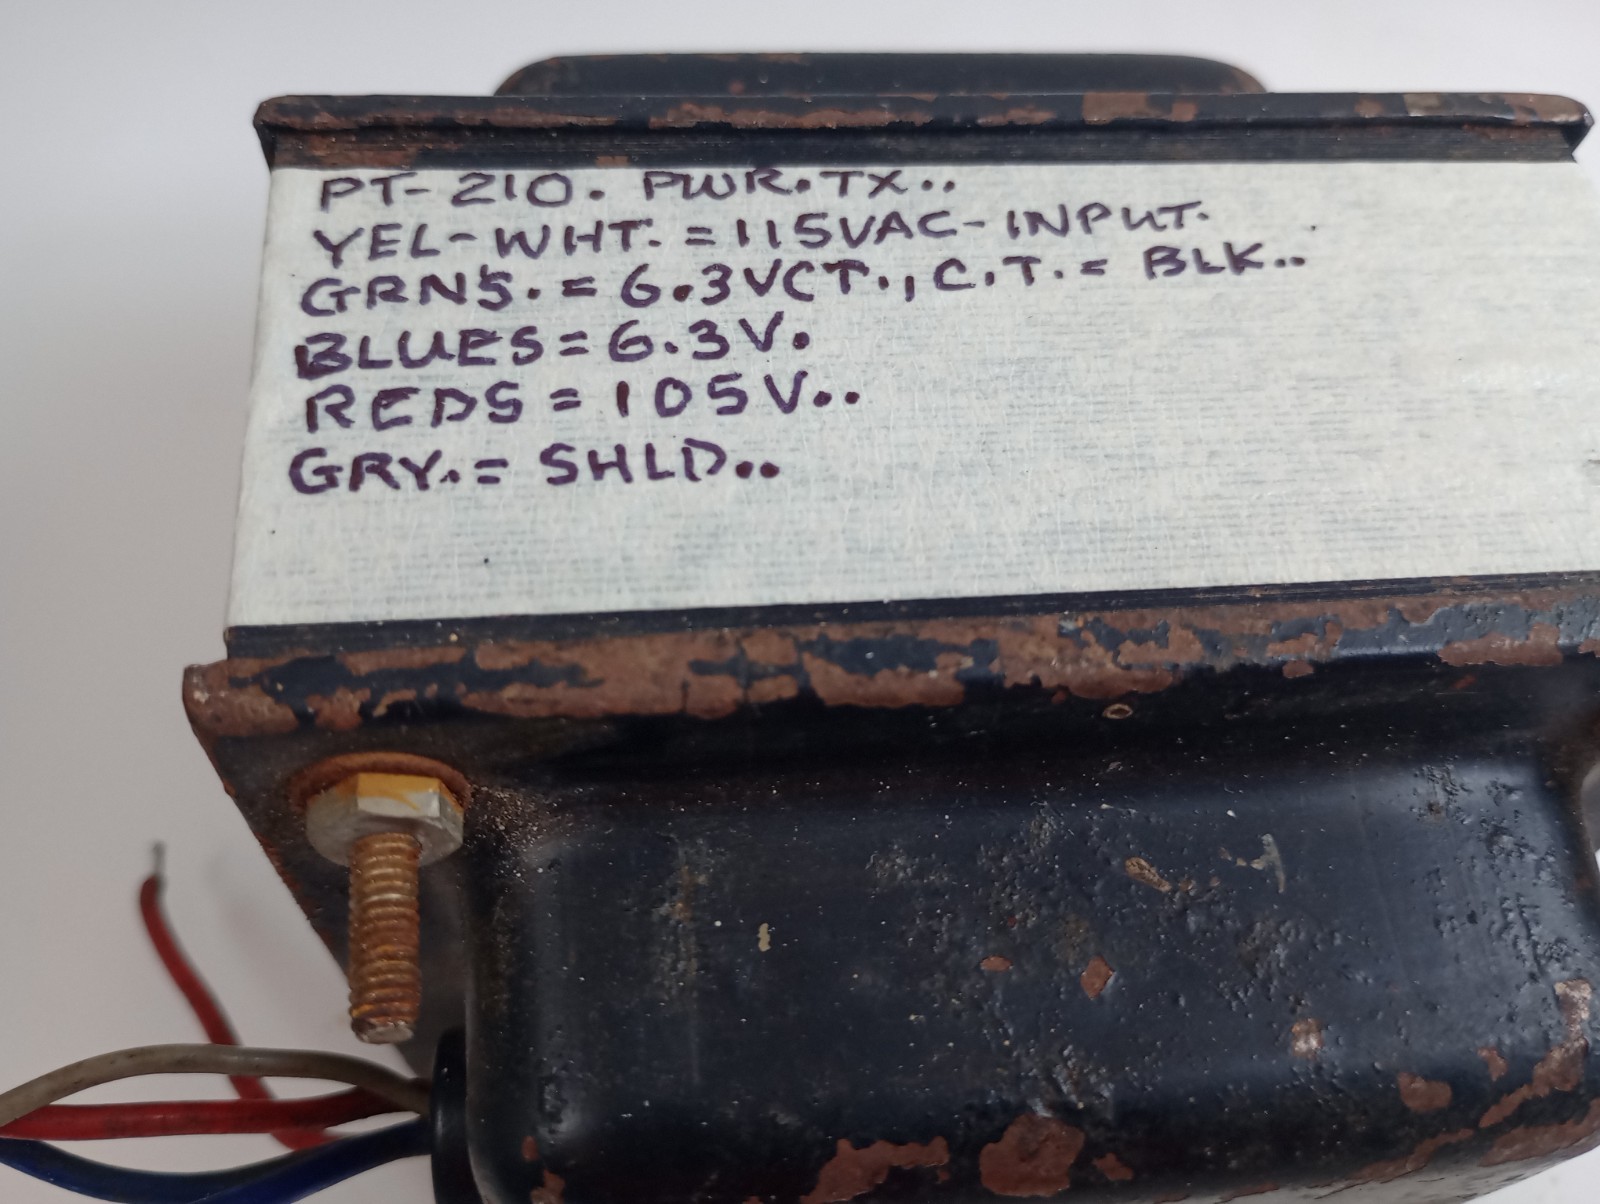 PT-210. PWR.TX..
YEL-WHT. = 115VAC-INPUT.
GRNS. = 6.3VCT., C.T. = BLK..
BLUES = 6.3V.
REDS = 105V..
GRY. = SHLD..